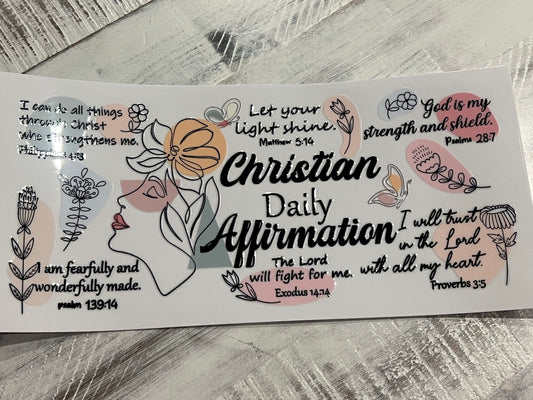 I can do all things
through Christ
who strengthens me.
Philippians 4:13
Let your
light shine.
Matthew 5:14
God is my
strength and shield.
Psalms 28:7
Christian
Daily
Affirmation
I am fearfully and
wonderfully made.
Psalm 139:14
The Lord
will fight for me.
Exodus 14:14
I will trust
in the Lord
with all my heart.
Proverbs 3:5